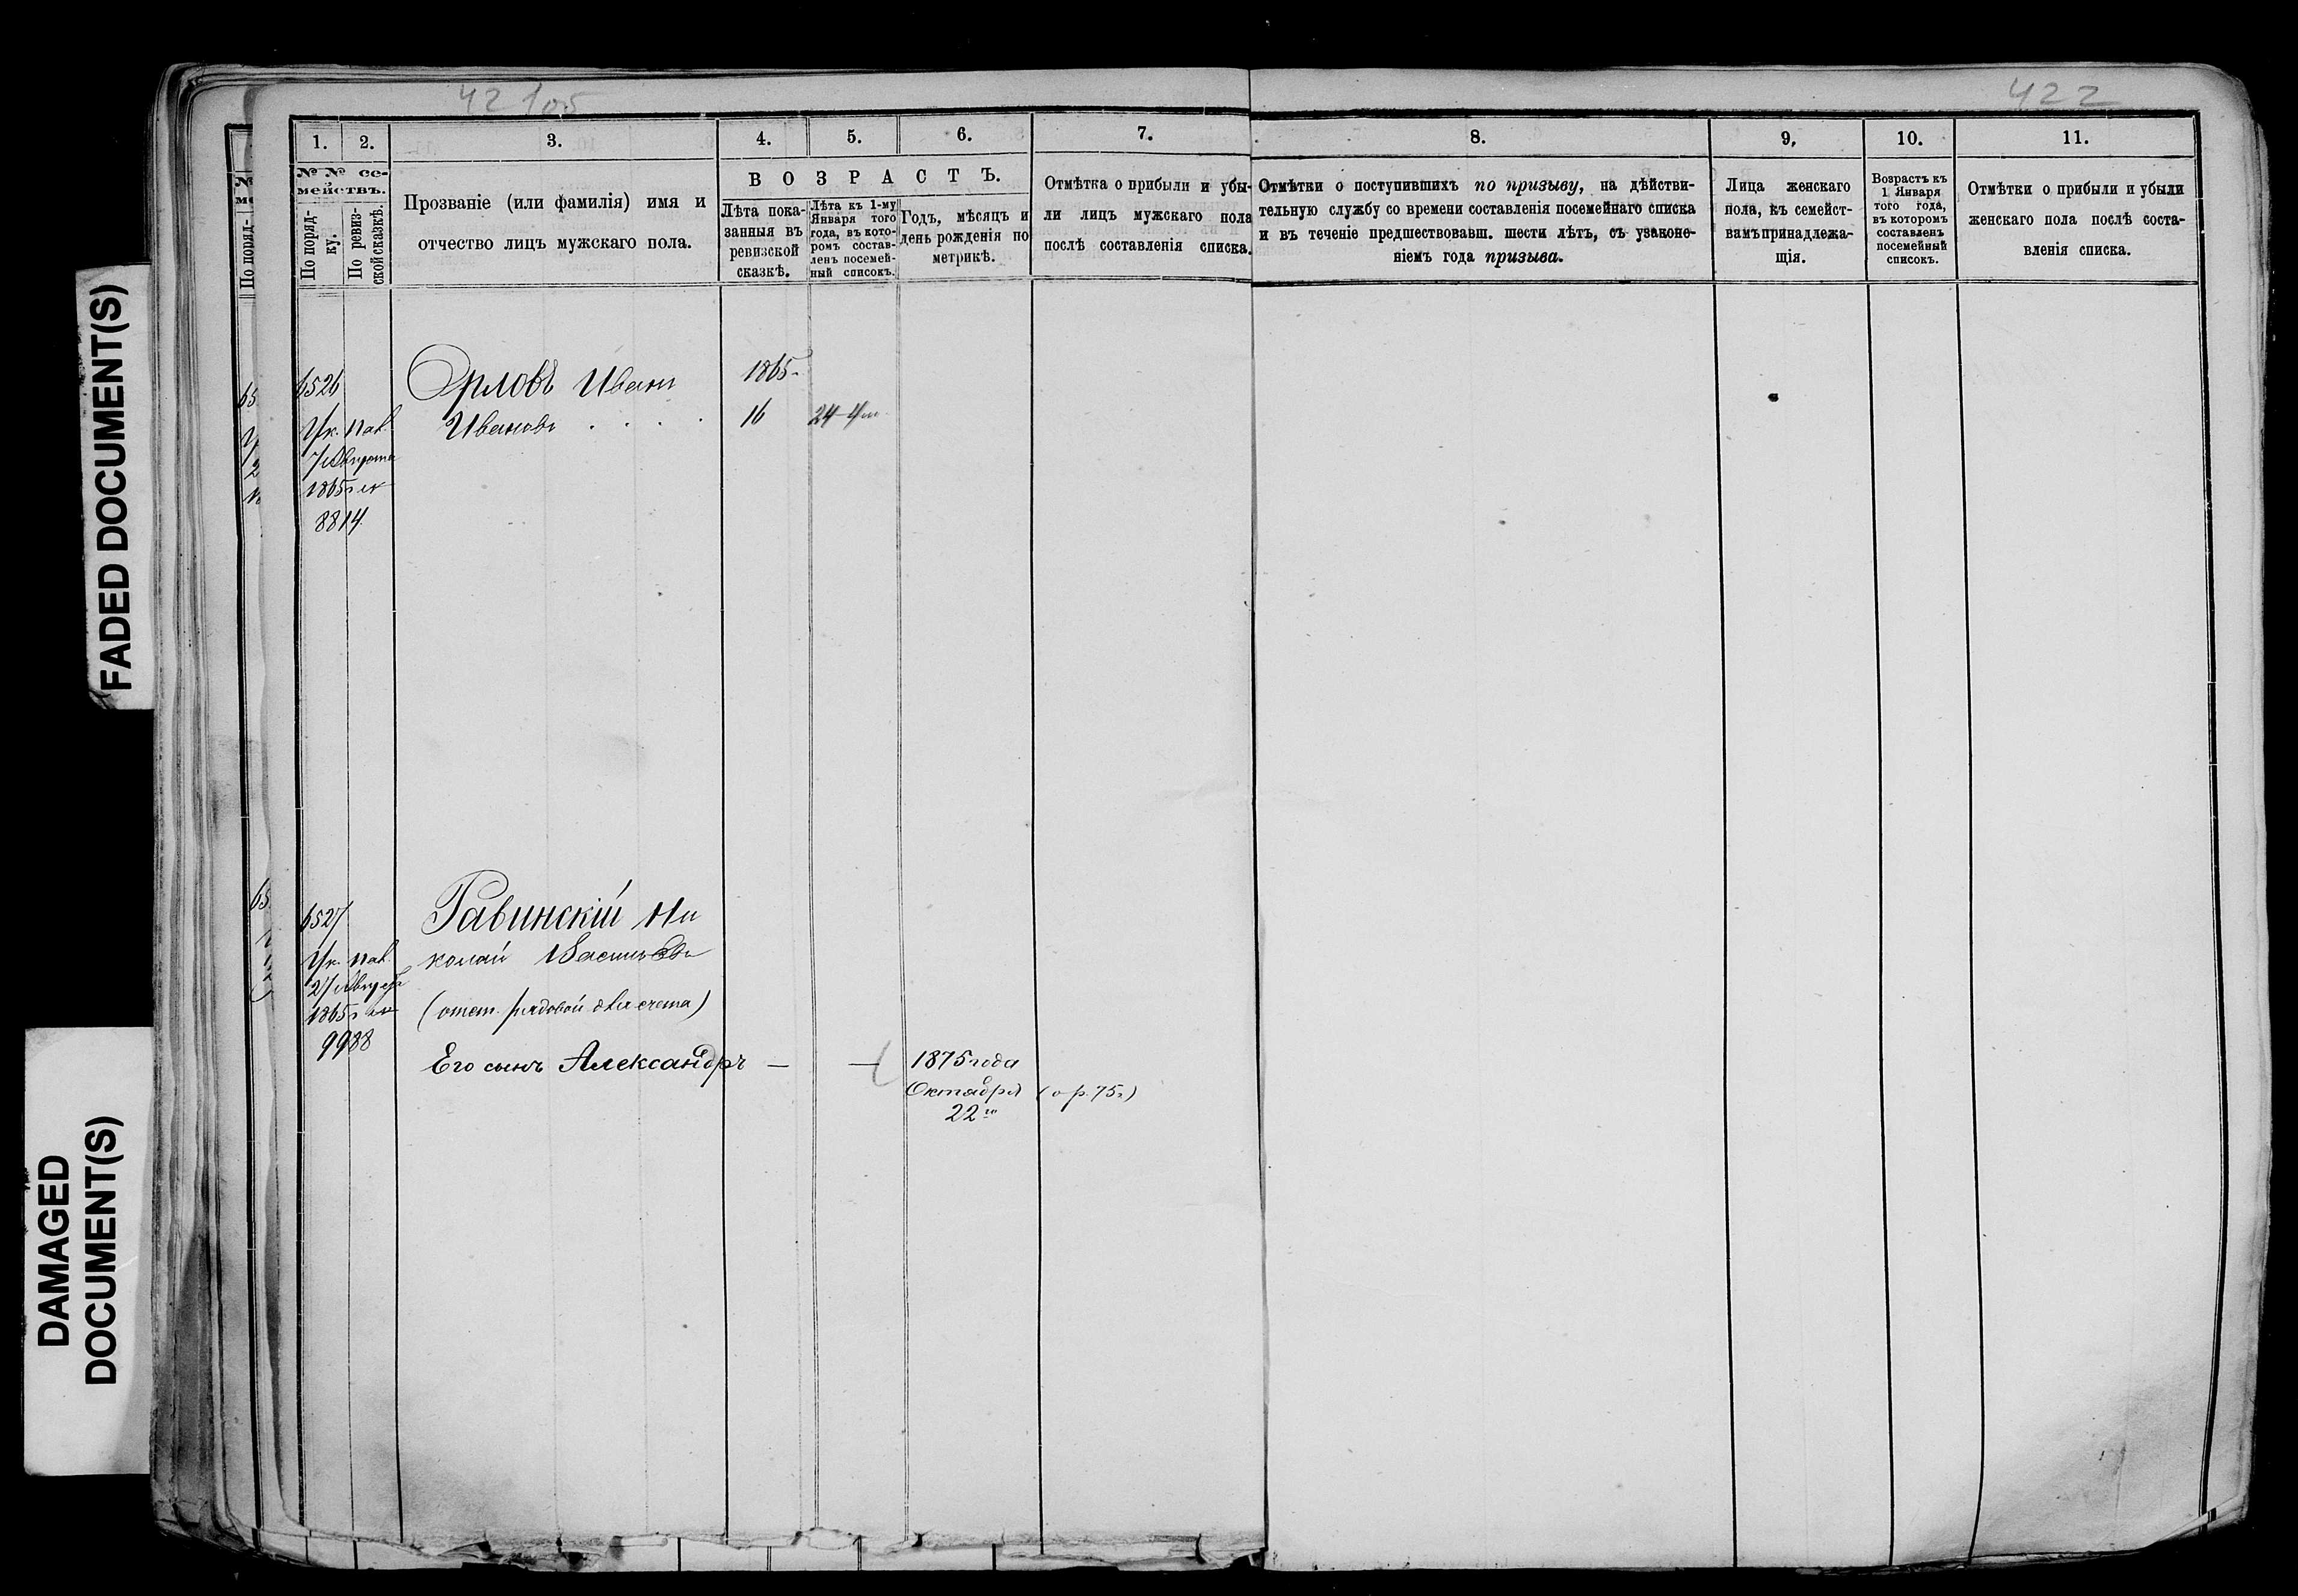 42 105
422
1.
2.
3.
4.
5.
6.
7.
8.
9.
10.
11.
№ № се-
мействъ.
По поряд-
ку.
По ревиз-
ской сказкѣ.
Прозваніе (или фамилія) имя и
отчество лицъ мужскаго пола.
ВОЗРАСТЪ.
Лѣта пока-
занныя въ
ревизской
сказкѣ.
Лѣта къ 1-му
Января того
года, въ кото-
ромъ состав-
ленъ посемей-
ный списокъ.
Годъ, мѣсяцъ и
день рожденія по
метрикѣ.
Отмѣтка о прибыли и убы-
ли лицъ мужскаго пола
послѣ составленія списка.
Отмѣтки о поступившихъ по призыву, на дѣйстви-
тельную службу со времени составленія посемейнаго списка
и въ теченіе предшествовавш. шести лѣтъ, съ узаконе-
ніемъ года призыва.
Лица женскаго
пола, къ семейст-
вамъ принадлежа-
щія.
Возрастъ къ
1 Января
того года,
въ которомъ
составленъ
посемейный
списокъ.
Отмѣтки о прибыли и убыли
женскаго пола послѣ соста-
вленія списка.
6526
Орловъ Иванъ
1865
Ивановъ
16
24
Ук. пал.
7 Августа
1865 г
8814.
6527
Равинскій Ни
Ук. пал.
колай Васильевъ
27 Августа
1865 г
9988
Его сынъ Александръ — —
1875 года
Октября
22
(о р. 75 г)
FADED DOCUMENT(S)
DAMAGED
DOCUMENT(S)